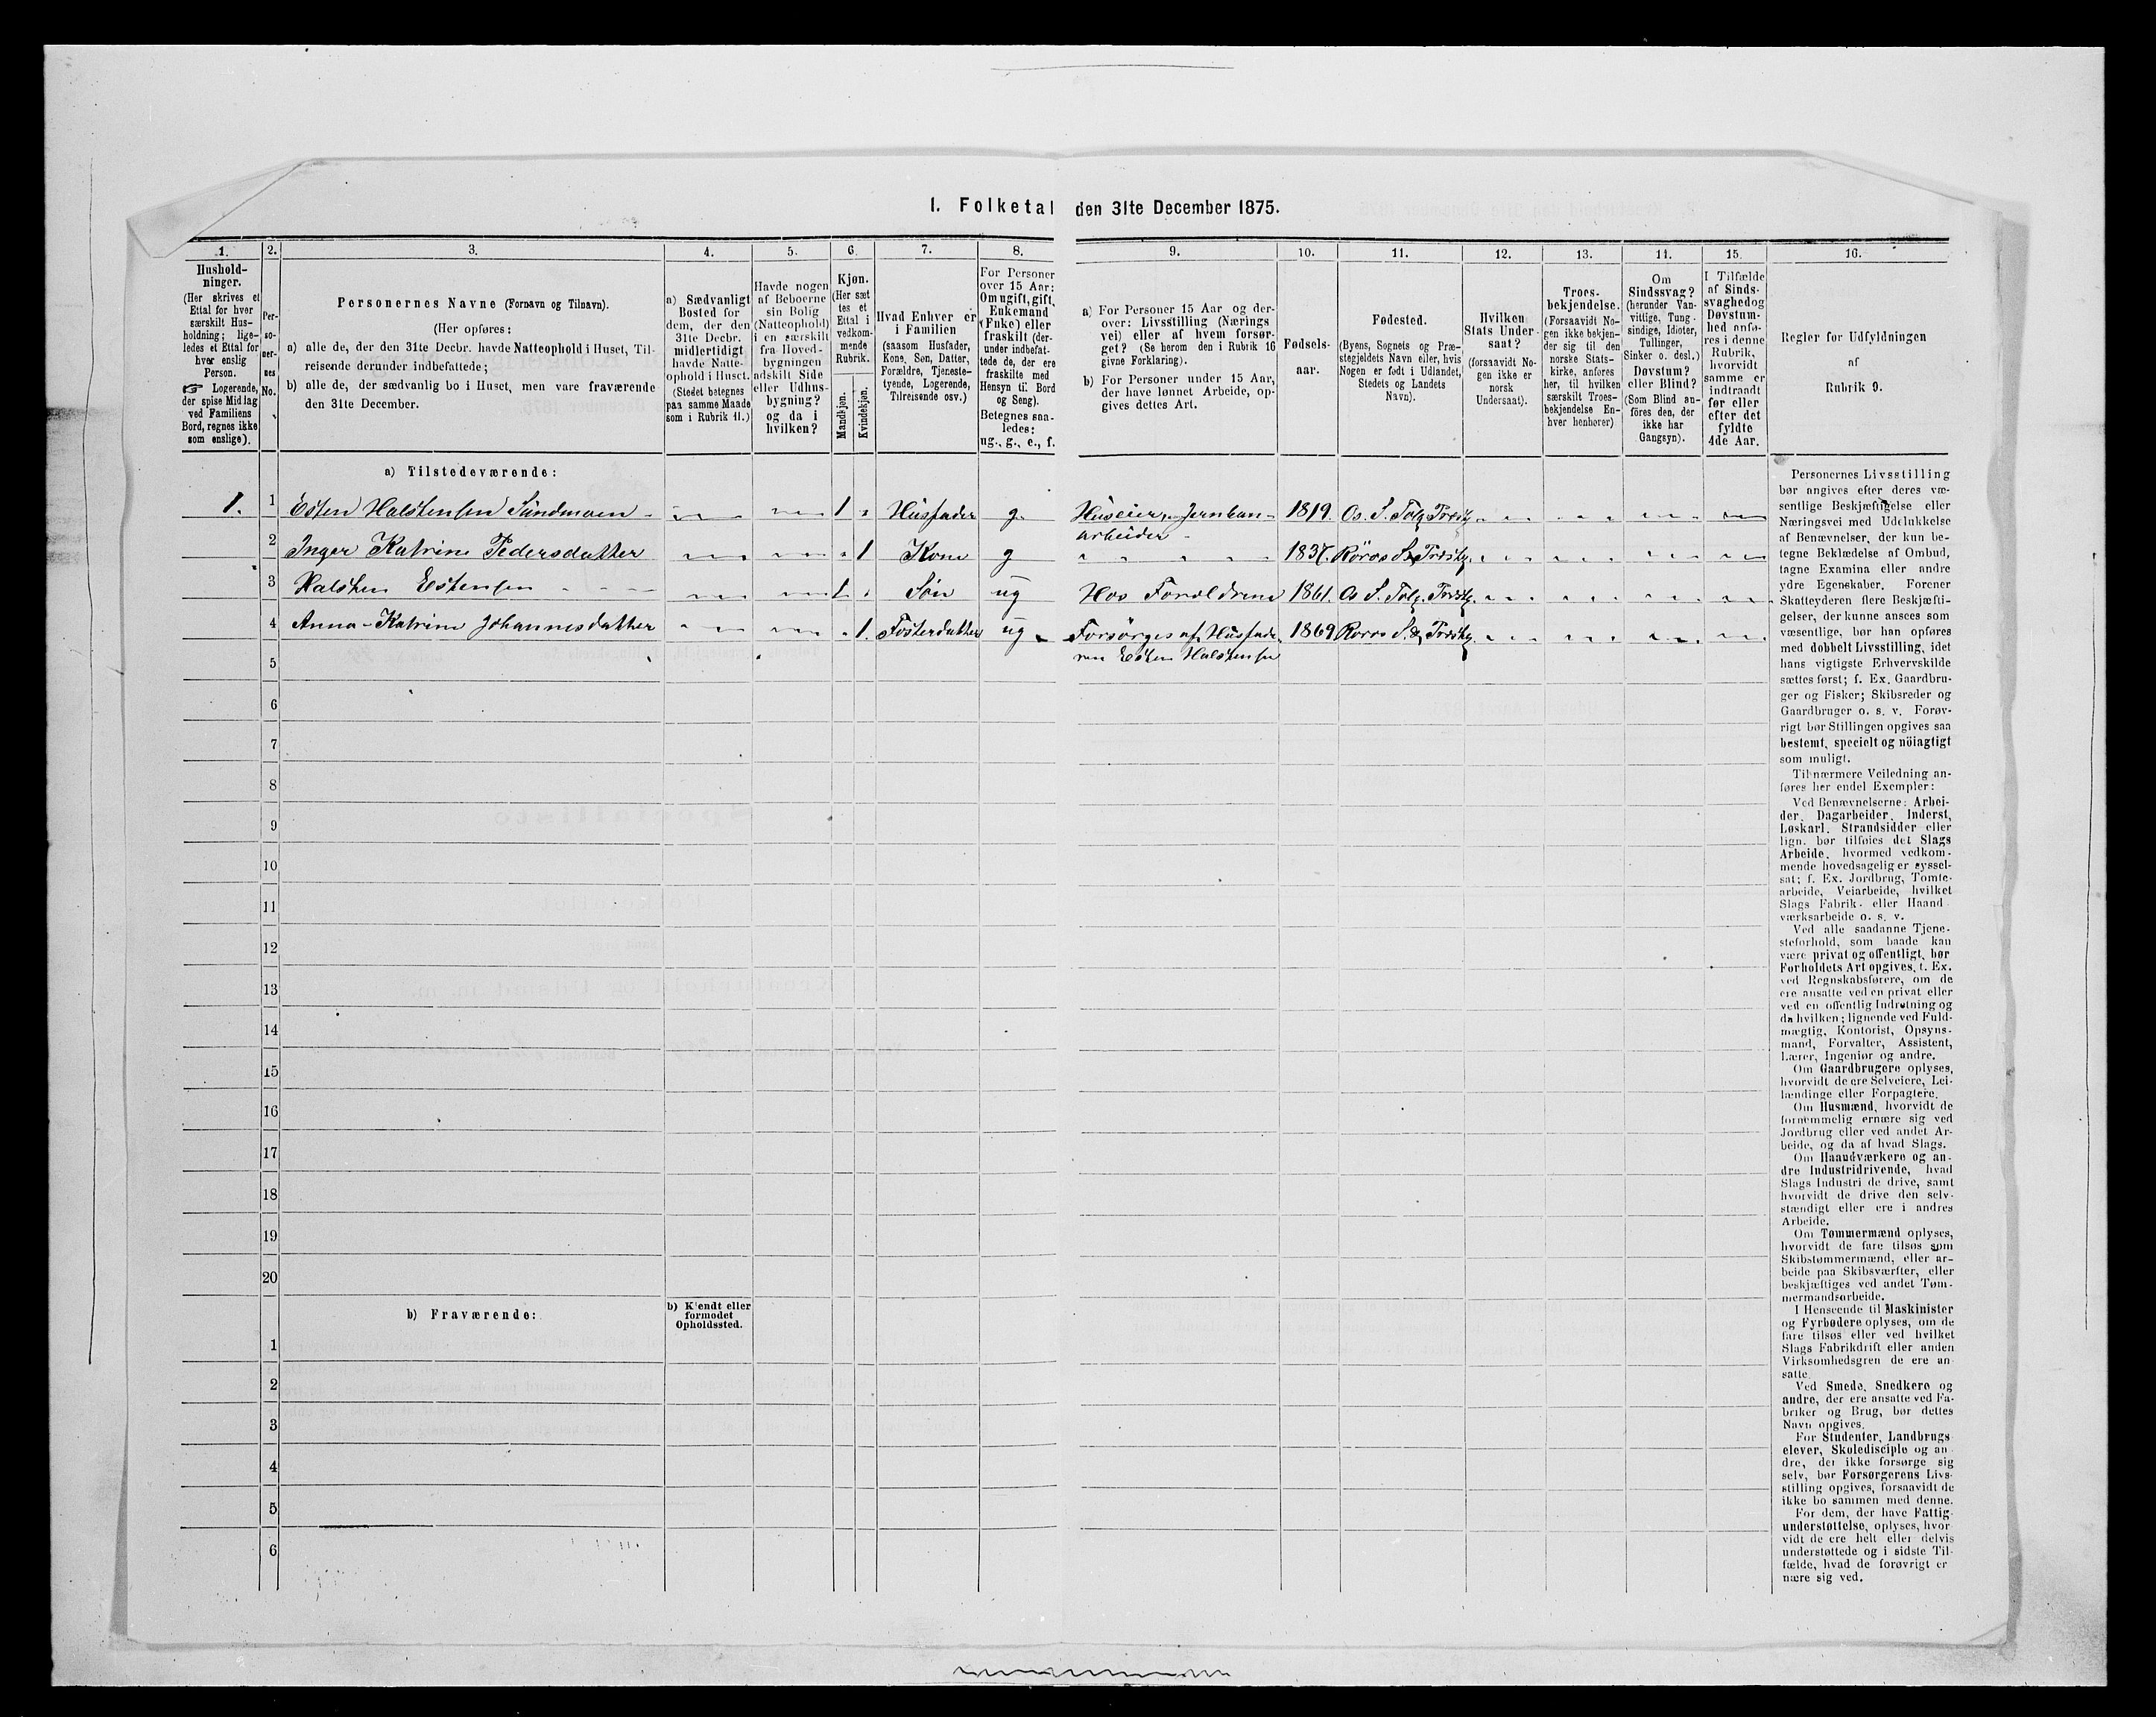 1. Folketal den 31te December 1875.
1. 2. 3. 4. 5. 6. 7. 8. 9. 10. 11. 12. 13. 14. 15. 16.
Hushold-
ninger.
(Her skrives et
Ettal for hver
særskilt Hus-
holdning; lige-
ledes et Ettal for
hver enslig
Person.
☞ Logerende,
der spise Middag
ved Familiens
Bord, regnes ikke
som enslige).
Per-
so-
ner-
nes
No.
Personernes Navne (Fornavn og Tilnavn).
(Her opføres:
a) alle de, der den 31te Decbr. havde Natteophold i Huset, Til-
reisende derunder indbefattede;
b) alle de, der sædvanlig bo i Huset, men vare fraværende
den 31te December.
a) Sædvanligt
Bosted for
dem, der den
31te Decbr.
midlertidigt
havde Natte-
ophold i Huset.
(Stedet betegnes
paa samme Maade
som i Rubrik 11.)
Havde nogen
af Beboerne
sin Bolig
(Natteophold)
i en særskilt
fra Hoved-
bygningen
adskilt Side
eller Udhus-
bygning?
og da i
hvilken?
Kjøn.
(Her sæt
tes et
Ettal i
vedkom-
mende
Rubrik.
Mandkjøn.
Kvindekjøn.
Hvad Enhver er
i Familien
(saasom Husfader,
Kone, Søn, Datter,
Forældre, Tjeneste-
tyende, Logerende,
Tilreisende osv.)
For Personer
over 15 Aar:
Om ugift, gift,
Enkemand
(Enke) eller
fraskilt (der-
under indbefat-
tede de, der ere
fraskilte med
Hensyn til Bord
og Seng).
Betegnes saa-
ledes:
ug., g., e., f.
a) For Personer 15 Aar og der-
over: Livsstilling (Nærings
vei) eller af hvem forsør-
get? (Se herom den i Rubrik 16
givne Forklaring).
b) For Personer under 15 Aar,
der have lønnet Arbeide, op-
gives dettes Art.
Fødsels-
aar.
Fødested.
(Byens, Sognets og Præ-
stegjeldets Navn eller, hvis
Nogen er født i Udlandet,
Stedets og Landets
Navn).
Hvilken
Stats Under-
saat?
(forsaavidt No-
gen ikke er
norsk
Undersaat).
Troes-
bekjendelse.
(Forsaavidt No-
gen ikke bekjen-
der sig til den
norske Stats-
kirke, anføres
her, til hvilken
særskilt Troes-
bekjendelse En-
hver henhører)
Om
Sindssvag?
(herunder Van-
vittige, Tung-
sindige, Idioter,
Tullinger,
Sinker o. desl.)
Døvstum?
eller Blind?
(Som Blind an-
føres den, der
ikke har
Gangsyn).
I Tilfælde
af Sinds-
svaghed og
Døvstum-
hed anfø-
res i denne
Rubrik,
hvorvidt
samme er
indtraadt
før eller
efter det
fyldte
4de Aar.
Regler for Udfyldningen
af
Rubrik 9.
a) Tilstedeværende:
1. 1 Esten Halstensen Sundmoen 1 Husfader g. Huseier, Jernban- 1819. Os. S. Tolg. Præstg.
arbeider
2 Inger Katrine Pedersdatter 1 Kone g 1837. Röros S. & Præstg.
3 Halsten Estensen 1 Søn ug Hos Foreldrene 1861. Os S. Tolg. Præstg.
4 Anna-Katrine Johannesdatter 1. Fosterdatter ug Forsørges af Husfade- 1869 Roros S. & Præstg.
ren Esten Halstensen
5
6
7
8
9
10
11
12
13
14
15
16
17
18
19
20
b) Fraværende:
b) Kjendt eller
formodet
Opholdssted.
1
2
3
4
5
6
Personernes Livsstilling
bør angives efter deres væ-
sentlige Beskjæftigelse eller
Næringsvei med Udelukkelse
af Benævnelser, der kun be-
tegne Beklædelse af Ombud,
tagne Examina eller andre
ydre Egenskaber. Forener
Skatteyderen flere Beskjæfti-
gelser, der kunne ansees som
væsentlige, bør han opføres
med dobbelt Livsstilling, idet
hans vigtigste Erhvervskilde
sættes først; f. Ex. Gaardbru-
ger og Fisker; Skibsreder og
Gaardbruger o. s. v. Forøv-
rigt bør Stillingen opgives saa
bestemt, specielt og nöiagtigt
som muligt.
Til nærmere Veiledning an-
føres her endel Exempler:
Ved Benævnelserne: Arbei-
der, Dagarbeider, Inderst,
Løskarl, Strandsidder eller
lign. bør tilføies det Slags
Arbeide, hvormed vedkom-
mende hovedsagelig er syssel-
sat; f. Ex. Jordbrug, Tomte-
arbeide, Veiarbeide, hvilket
Slags Fabrik- eller Haand-
værksarbeide o. s. v.
Ved alle saadanne Tjene-
steforhold, som baade kan
være privat og offentligt, bør
Forholdets Art opgives, f. Ex.
ved Regnskabsførere, om de
ere ansatte ved en privat eller
ved en offentlig Indretning og
da hvilken; lignende ved Fuld-
mægtig, Kontorist, Opsyns-
mand, Forvalter, Assistent,
Lærer, Ingeniør og andre.
Om Gaardbrugere oplyses,
hvorvidt de ere Selveiere, Lei-
lændinge eller Forpagtere.
Om Husmænd, hvorvidt de
fornemmelig ernære sig ved
Jordbrug eller ved andet Ar-
beide, og da af hvad Slags.
Om Haandværkere og an-
dre Industridrivende, hvad
Slags Industri de drive, samt
hvorvidt de drive den selv-
stændigt eller ere i andres
Arbeide.
Om Tømmermænd oplyses,
hvorvidt de fare tilsøs som
Skibstømmermænd, eller ar-
beide paa Skibsværfter, eller
beskjæftiges ved andet Tøm-
mermandsarbeide.
I Henseende til Maskinister
og Fyrbødere oplyses, om de
fare tilsøs eller ved hvilket
Slags Fabrikdrift eller anden
Virksomhedsgren de ere an-
satte.
Ved Smede, Snedkere og
andre, der ere ansatte ved Fa-
briker og Brug, bør dettes
Navn opgives.
For Studenter, Landbrugs-
elever, Skoledisciple og an-
dre, der ikke forsørge sig
selv, bør Forsørgerens Livs-
stilling opgives, forsaavidt de
ikke bo sammen med denne.
For dem, der have Fattig-
understøttelse, oplyses, hvor-
vidt de ere helt eller delvis
understøttede og i sidste Til-
fælde, hvad de forøvrigt er-
nære sig ved.